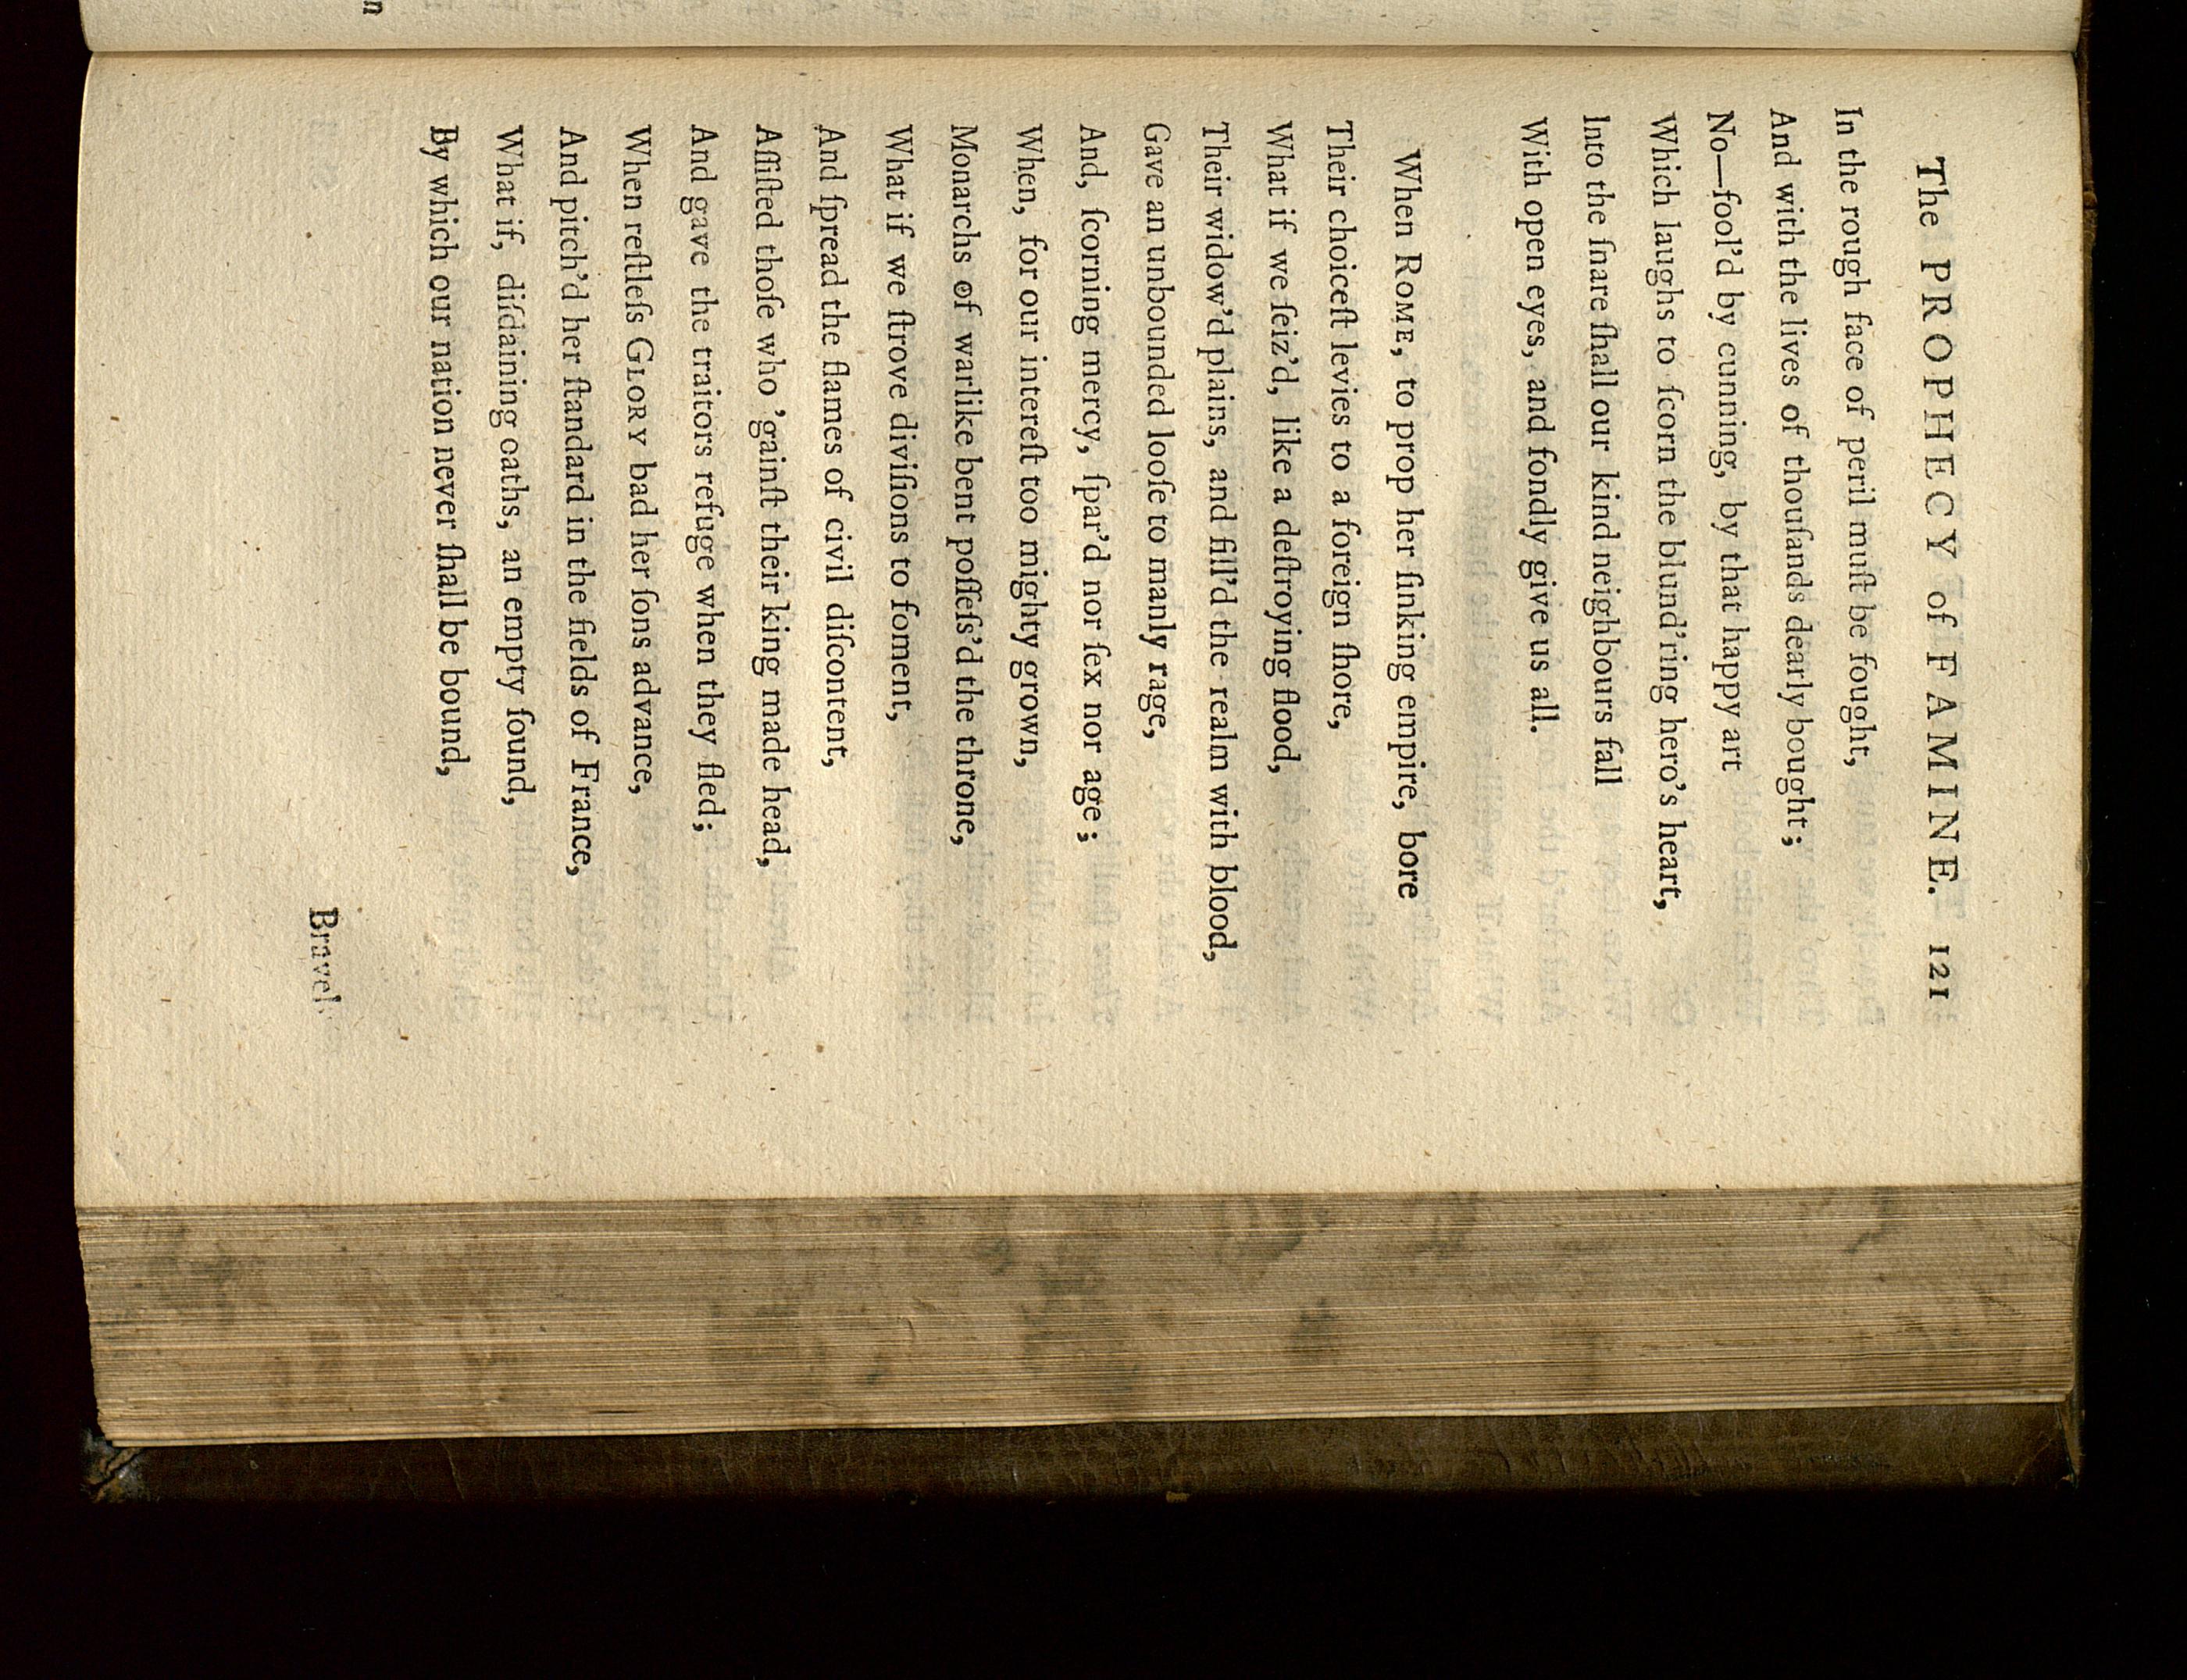 The PROPHECY of FAMINE. 121
In the rough face of peril muſt be ſought,
And with the lives of thouſands dearly bought;
No—fool'd by cunning, by that happy art
Which laughs to ſcorn the blund'ring hero's heart,
Into the ſnare ſhall our kind neighbours fall
With open eyes, and fondly give us all.
When ROME, to prop her ſinking empire, bore
Their choiceſt levies to a foreign ſhore,
What if we ſeiz'd, like a deſtroying flood,
Their widow'd plains, and fill'd the realm with blood,
Gave an unbounded looſe to manly rage,
And, ſcorning mercy, ſpar'd nor ſex nor age;
When, for our intereſt too mighty grown,
Monarchs of warlike bent poſſeſs'd the throne,
What if we ſtrove diviſions to foment,
And ſpread the flames of civil diſcontent,
Aſſiſted thoſe who 'gainſt their king made head,
And gave the traitors refuge when they fled;
When reſtleſs GLORY bad her ſons advance,
And pitch'd her ſtandard in the fields of France,
What if, diſdaining oaths, an empty ſound,
By which our nation never ſhall be bound,
n